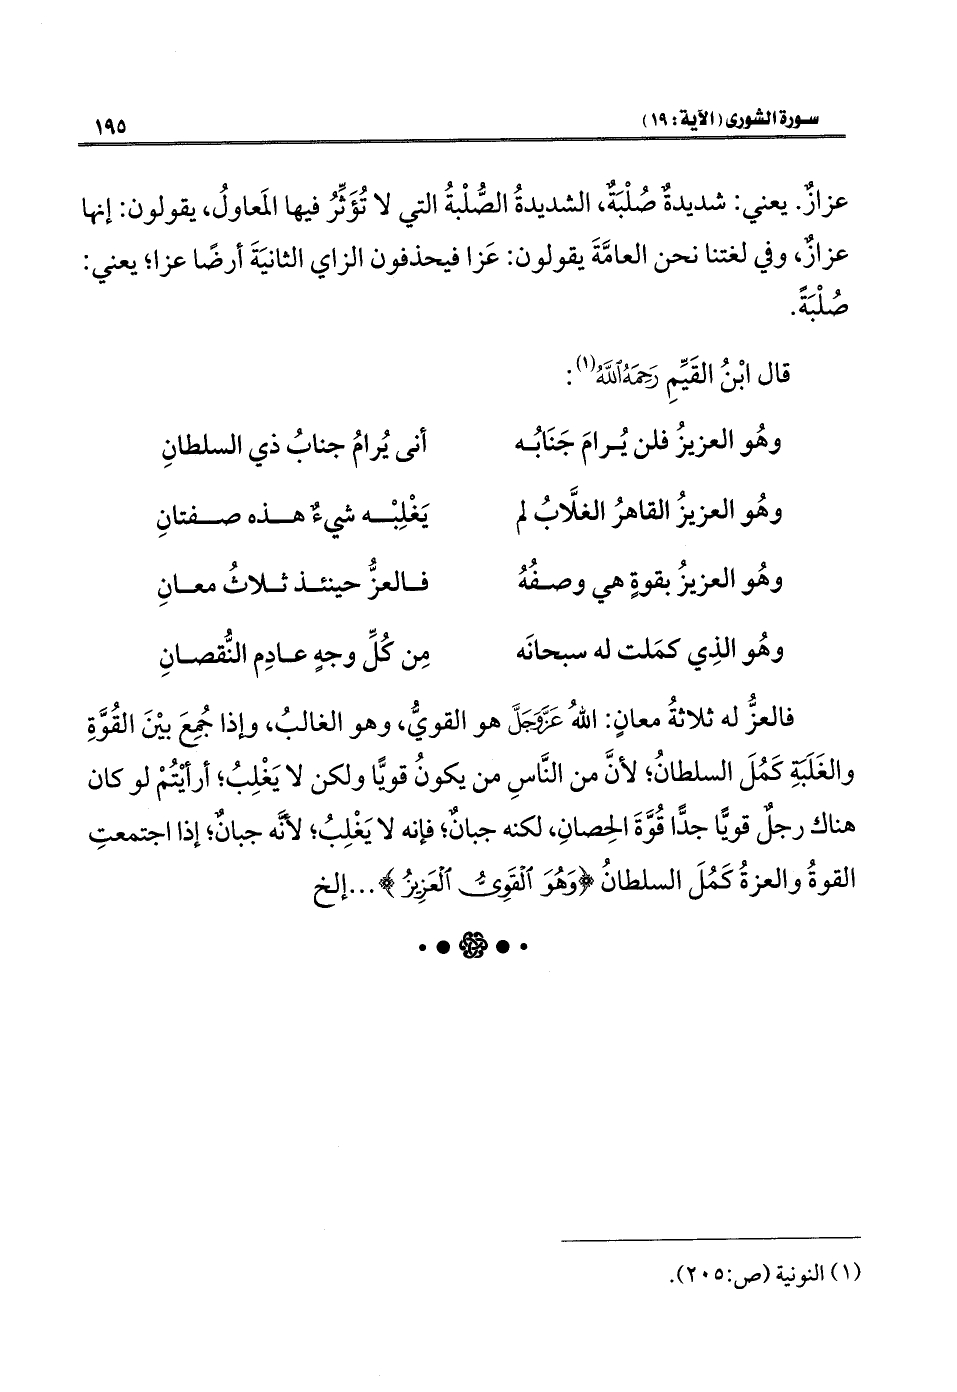 سورة الشورى (الآية: ١٩) ١٩٥
عزازٌ. يعني: شديدةٌ صُلْبَةٌ، الشديدةُ الصُّلْبةُ التي لا تُؤَثِّرُ فيها المَعاولُ، يقولون: إنها
عزازٌ، وفي لغتنا نحن العامَّةَ يقولون: عَزا فيحذفون الزاي الثانيَةَ أرضًا عزا؛ يعني:
صُلْبَةً.
قال ابْنُ القَيِّمِ رَحِمَهُ ٱللَّهُ(١):
وهُو العزيزُ فلن يُـرامَ جَنَابُـه أنى يُرامُ جنابُ ذي السلطانِ
وهُو العزيزُ القاهرُ الغلَّابُ لم يَغْلِبْـــه شيءٌ هـــذه صـــفتانِ
وهُو العزيزُ بقوةٍ هي وصـفُهُ فـالعزُّ حينئـذ ثـلاثُ معـانِ
وهُو الذِي كمَلت له سبحانَه مِن كُلِّ وجهٍ عـادِم النُّقصـانِ
فالعزُّ له ثلاثةُ معانٍ: اللهُ عَزَّوَجَلَّ هو القويُّ، وهو الغالبُ، وإذا جُمِعَ بيْنَ القُوَّةِ
والغَلَبَةِ كَمُلَ السلطانُ؛ لأنَّ من النَّاسِ من يكونُ قويًّا ولكن لا يَغْلِبُ؛ أرأيْتُمْ لو كان
هناك رجلٌ قويًّا جدًّا قُوَّةَ الحِصانِ، لكنه جبانٌ؛ فإنه لا يَغْلِبُ؛ لأنَّه جبانٌ؛ إذا اجتمعتِ
القوةُ والعزةُ كَمُلَ السلطانُ ﴿وَهُوَ ٱلْقَوِىُّ ٱلْعَزِيزُ﴾...إلخ
(١) النونية (ص:٢٠٥).